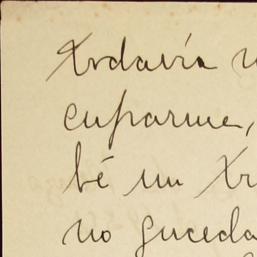 Todavía
cuparme,
bé un
no suceda